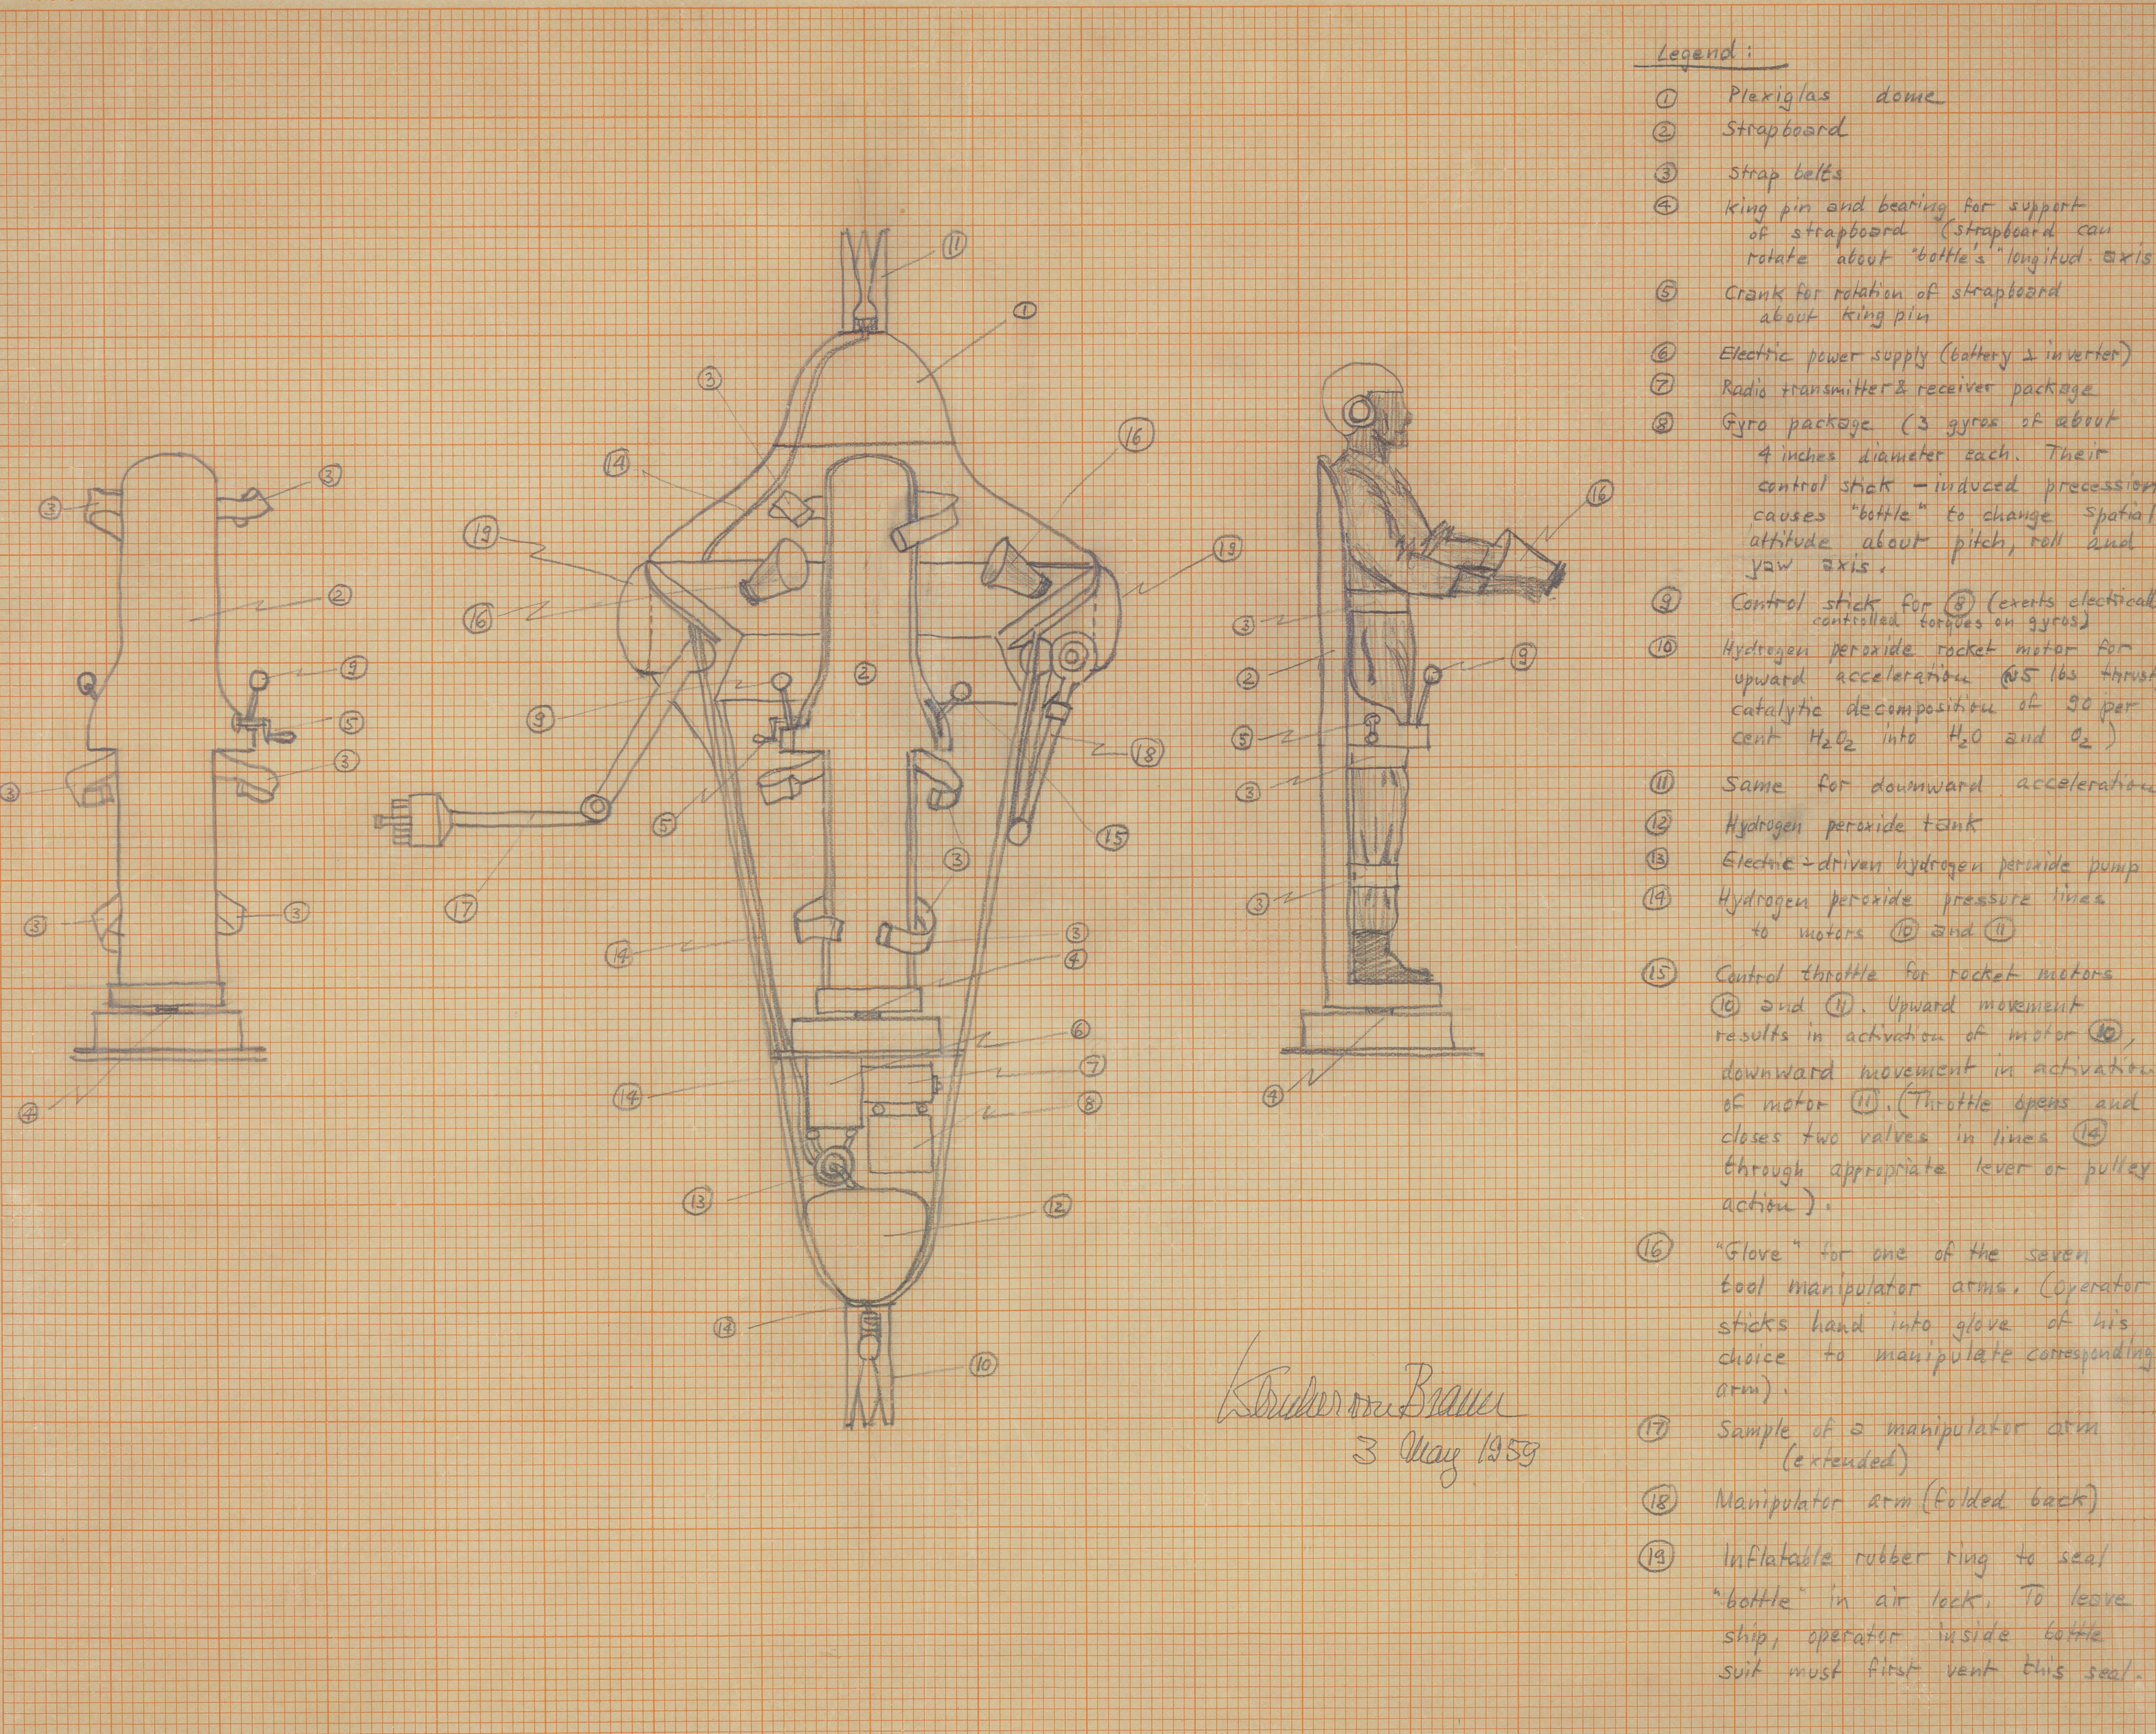 Legend:
① Plexiglas dome
② Strapboard
③ Strap belts
④ King pin and bearing for support
of strapboard (strapboard can
rotate about "bottle's" longitud. axis
⑤ Crank for rotation of strapboard
about king pin
⑥ Electric power supply (battery & inverter)
⑦ Radio transmitter & receiver package
⑧ Gyro package (3 gyros of about
4 inches diameter each. Their
control stick - induced precession
causes "bottle" to change spatial
attitude about pitch, roll and
yaw axis.
⑨ Control stick for ⑧ (exerts electrically
controlled torques on gyros)
⑩ Hydrogen peroxide rocket motor for
upward acceleration (≈5 lbs thrust
catalytic decomposition of 90 per
cent H₂O₂ into H₂O and O₂)
⑪ Same for downward acceleration
⑫ Hydrogen peroxide tank
⑬ Electric-driven hydrogen peroxide pump
⑭ Hydrogen peroxide pressure lines
to motors ⑩ and ⑪
⑮ Control throttle for rocket motors
⑩ and ⑪. Upward movement
results in activation of motor ⑩,
downward movement in activation
of motor ⑪. (Throttle opens and
closes two valves in lines ⑭
through appropriate lever or pulley
action).
⑯ "Glove" for one of the seven
tool manipulator arms. (Operator
sticks hand into glove of his
choice to manipulate corresponding
arm).
⑰ Sample of a manipulator arm
(extended)
⑱ Manipulator arm (folded back)
⑲ Inflatable rubber ring to seal
"bottle" in air lock. To leave
ship, operator inside bottle
suit must first vent this seal.
③
③
②
⑨
⑤
③
③
③
③
④
⑪
①
③
⑭
⑯
⑲
⑲
⑯
②
⑨
⑱
⑤
⑮
③
⑰
③
④
⑭
⑥
⑦
⑭
⑧
⑬
⑫
⑭
⑩
⑯
③
⑨
②
⑤
③
③
④
Wernher von Braun
3 May 1959